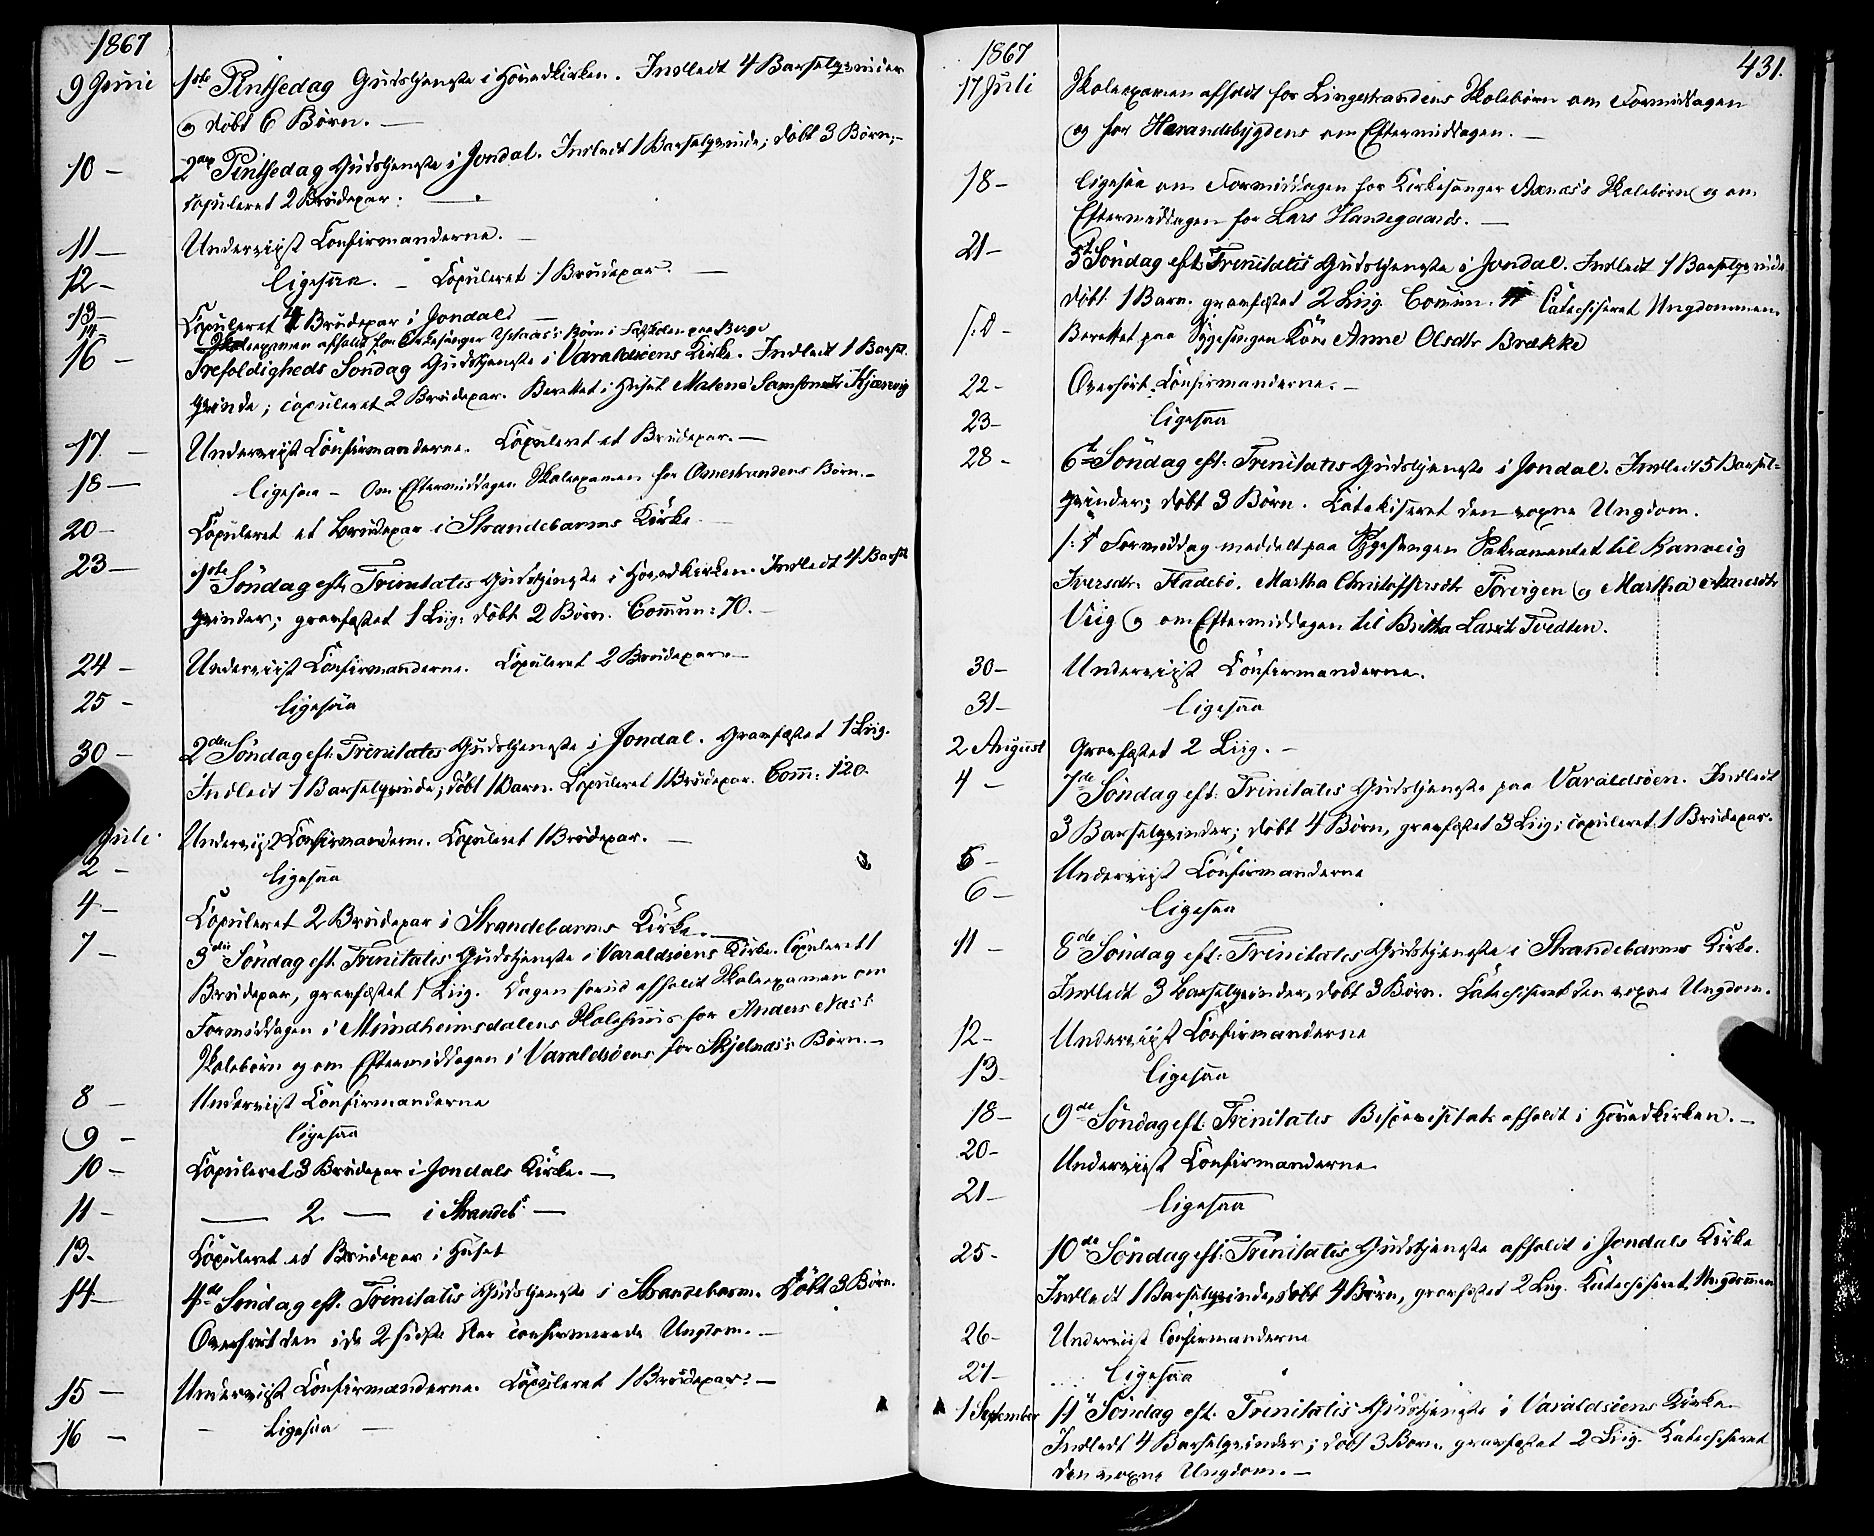 1867
9 Juni 1ste Pintsedag Gudstjeneste i Hovedkirken. Indledt 4 Barselqvinder
og døbt 6 Børn. —
10 — 2den Pintsedag Gudstjeneste i Jondal. Indledt 1 Barselqvinde; døbt 3 Børn;
copuleret 2 Brudepar. —
11 — Underviist Confirmanderne. —
12 — ligesaa. — Copuleret 1 Brudepar. —
13 — Copuleret 4 Brudepar i Jondal. —
14 Skoleexamen afholdt for Kirkesanger Børn i paa Berge
16 — Trefoldigheds Søndag Gudstjeneste i Varaldsøens Kirke. Indledt 1 Barsel-
qvinde; copuleret 2 Brudepar. Berettet i Huset Malene Samsonsdtr Kjærevig
17 — Underviist Confirmanderne. Copuleret et Brudepar. —
18 — ligesaa — Om Eftermiddagen Skoleexamen for Omestrandens Børn. —
20 — Copuleret et Brudepar i Strandebarms Kirke
23 — 1ste Søndag eft. Trinitatis Gudstjeneste i Hovedkirken. Indledt 4 Barsel
qvinder; gravfæstet 1 Liig; døbt 2 Børn. Commun: 70. —
24 — Underviist Confirmanderne. Copuleret 2 Brudepar —
25 — ligesaa
30 — 2den Søndag eft. Trinitatis Gudstjeneste i Jondal. Gravfæstet 1 Liig.
Indledt 1 Barselqvinde; døbt 1 Barn. Copuleret 1 Brudepar. Comm: 120.
Juli. Underviist Confirmanderne. Copuleret 1 Brudepar. —
2 — ligesaa
4 — Copuleret 2 Brudepar i Strandebarms Kirke. —
7 — 3die Søndag eft. Trinitatis Gudstjeneste i Varaldsøens Kirke. Copuleret 1
Brudepar, gravfæstet 1 Liig. Dagen forud afholdt Skoleexamen om
Formiddagen i Mundheimsdalens Skolehuus for Anders Næss
Skolebørn og om Eftermiddagen i Varaldsøens for Skjelnæs's Børn. —
8 — Underviist Confirmanderne
9 — ligesaa
10 — Copuleret 3 Brudepar i Jondals Kirke. —
11 — — 2 — i Strandeb. —
13 — Copuleret et Brudepar i Huset
14 — 4de Søndag eft. Trinitatis Gudstjeneste i Strandebarm. Døbt 3 Børn.
Overhørt den i de 2 sidste Aar confirmerede Ungdom. —
15 — Underviist Confirmanderne. Copuleret 1 Brudepar. —
16 — — ligesaa —
1867 431.
17 Juli Skoleexamen afholdt for Lingestrandens Skolebørn om Formiddagen
og for Herandsbygdens om Eftermiddagen. —
18 — ligesaa om Formiddagen for Kirkesanger Skolebørn og om
Eftermiddagen for Lars Handegaards. —
21 — 5te Søndag eft. Trinitatis Gudstjeneste i Jondal. Indledt 1 Barselqvinde
døbt 1 Barn. gravfæstet 2 Liig. Comun. Catechiseret Ungdommen
s. d — Berettet paa Sygesengen Kone Anne Olsdtr Brække
22 — Overhørt Confirmanderne. —
23 — ligesaa
28 — 6te Søndag eft. Trinitatis Gudstjeneste i Jondal. Indledt 5 Barsel-
qvinder; døbt 3 Børn. Catekiseret den voxne Ungdom.
s. d Formiddag meddelt paa Sygesengen Sakramentet til Ranveig
Iversdtr Fladebø. Martha Christoffersdtr Torvigen og Martha
Viig og om Eftermiddagen til Britha Larsdtr Tvedten.
30 — Underviist Confirmanderne.
31 — ligesaa
2 August Gravfæstet 2 Liig. —
4 — 7de Søndag eft. Trinitatis Gudstjeneste paa Varaldsøen. Indledt
3 Barselqvinder; døbt 4 Børn, gravfæstet 3 Liig; copuleret 1 Brudepar.
5 — Underviist Confirmanderne
6 — ligesaa
11 — 8de Søndag eft. Trinitatis Gudstjeneste i Strandebarms Kirke.
Indledt 3 Barselqvinder, døbt 3 Børn. Catechiseret den voxne Ungdom.
12 — Underviist Confirmanderne
13 — ligesaa
18 — 9de Søndag eft. Trinitatis Bispevisitats afholdt i Hovedkirken. —
20 — Underviist Confirmanderne
21 — ligesaa
25 — 10de Søndag eft. Trinitatis Gudstjeneste afholdt i Jondals Kirke
Indledt 1 Barselqvinde, døbt 4 Børn, gravfæstet 2 Liig. Katechiseret Ungdommen
26 — Underviist Confirmanderne
27 — ligesaa
1 September 11te Søndag eft. Trinitatis Gudstjeneste i Varaldsøens Kirke
Indledt 4 Barselqvinder; døbt 3 Børn gravfæstet 2 Liig. Katechiseret
den voxne Ungdom. —